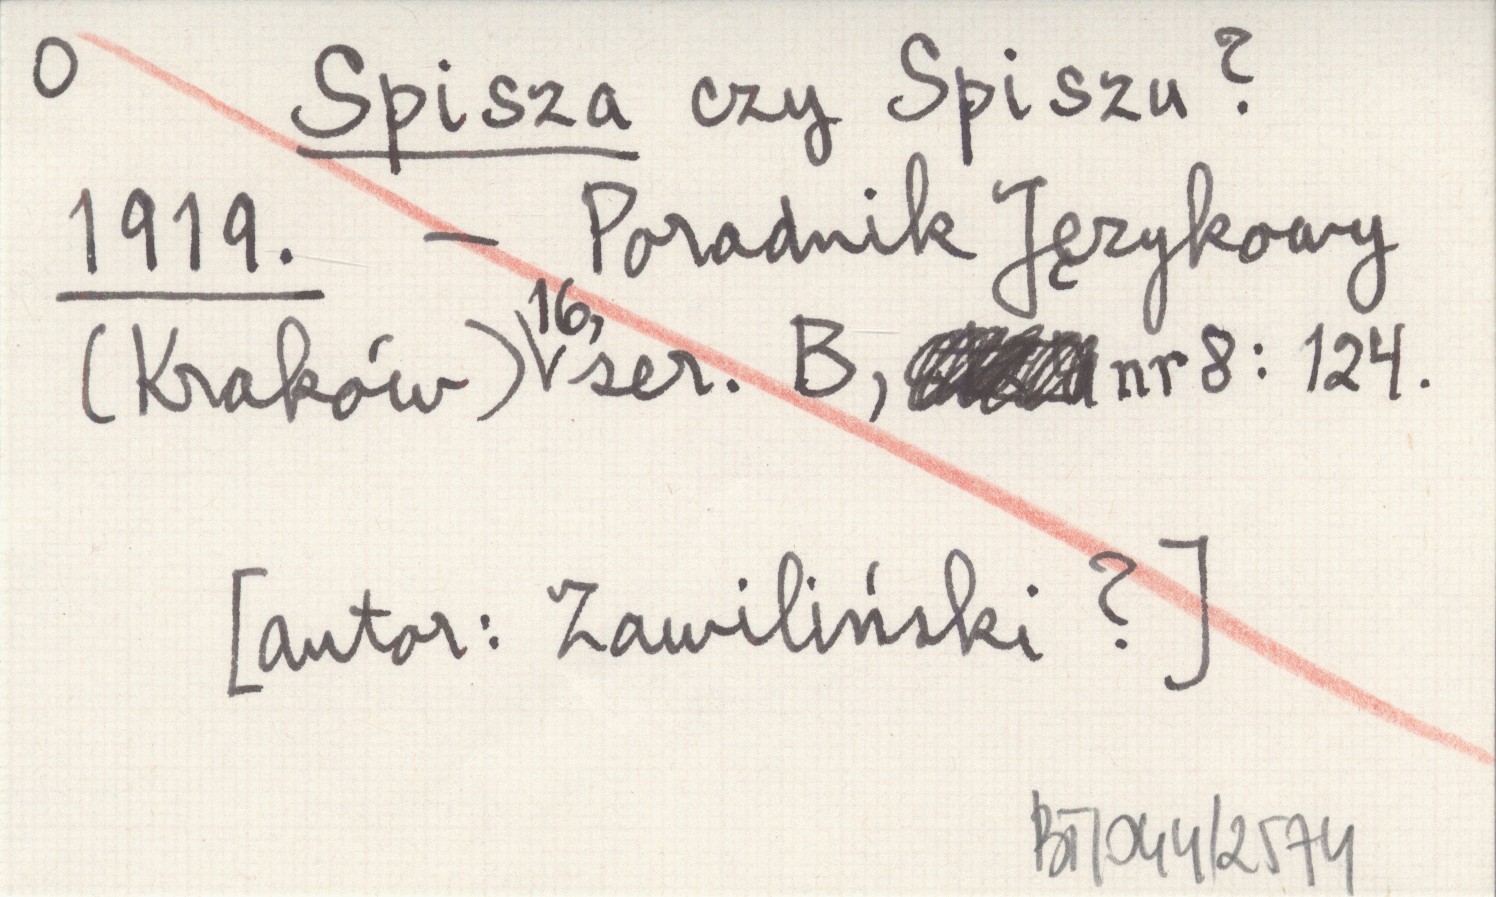 O Spisza czy Spiszu?
1919. — Poradnik Językowy
(Kraków) 16, ser. B, nr 8: 124.
[autor: Zawiliński ?]
BT/044/2574